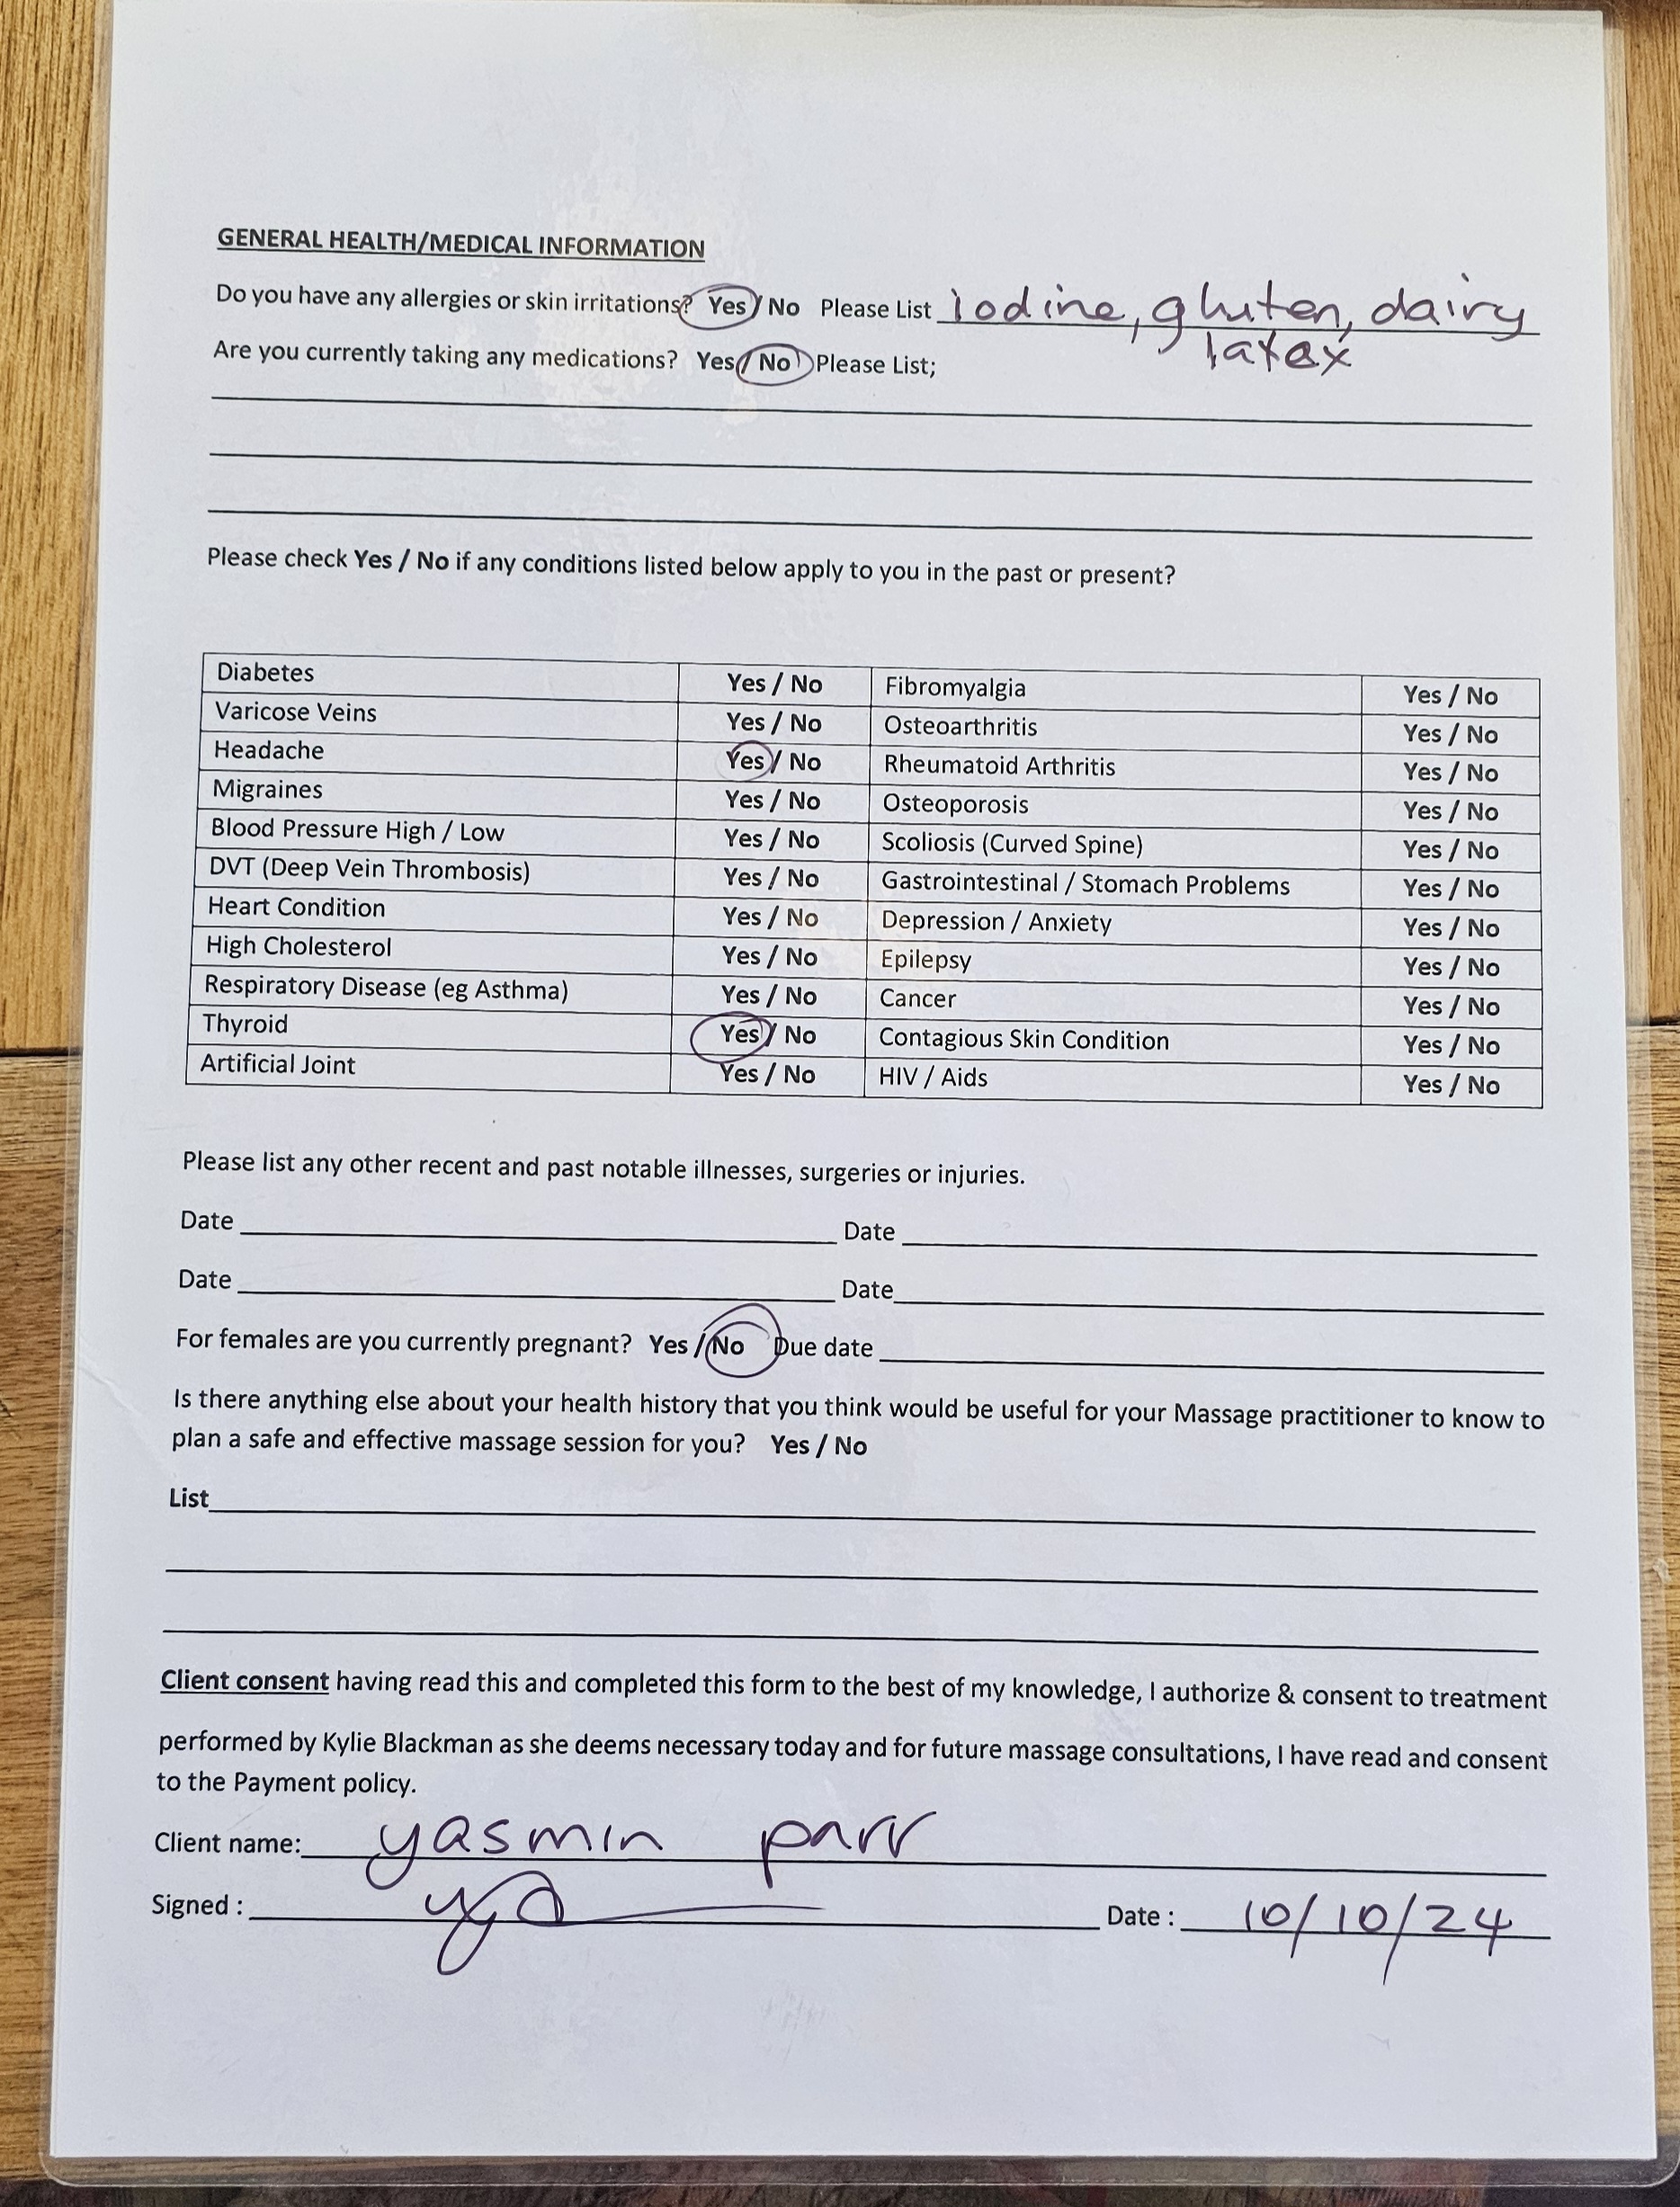 GENERAL HEALTH/MEDICAL INFORMATION
Do you have any allergies or skin irritations? Yes / No Please List iodine, gluten, dairy
latex
Are you currently taking any medications? Yes / No Please List;
Please check Yes / No if any conditions listed below apply to you in the past or present?
Diabetes Yes / No Fibromyalgia Yes / No
Varicose Veins Yes / No Osteoarthritis Yes / No
Headache Yes / No Rheumatoid Arthritis Yes / No
Migraines Yes / No Osteoporosis Yes / No
Blood Pressure High / Low Yes / No Scoliosis (Curved Spine) Yes / No
DVT (Deep Vein Thrombosis) Yes / No Gastrointestinal / Stomach Problems Yes / No
Heart Condition Yes / No Depression / Anxiety Yes / No
High Cholesterol Yes / No Epilepsy Yes / No
Respiratory Disease (eg Asthma) Yes / No Cancer Yes / No
Thyroid Yes / No Contagious Skin Condition Yes / No
Artificial Joint Yes / No HIV / Aids Yes / No
Please list any other recent and past notable illnesses, surgeries or injuries.
Date Date
Date Date
For females are you currently pregnant? Yes / No Due date
Is there anything else about your health history that you think would be useful for your Massage practitioner to know to
plan a safe and effective massage session for you? Yes / No
List
Client consent having read this and completed this form to the best of my knowledge, I authorize & consent to treatment
performed by Kylie Blackman as she deems necessary today and for future massage consultations, I have read and consent
to the Payment policy.
Client name: yasmin parr
Signed : Date : 10/10/24